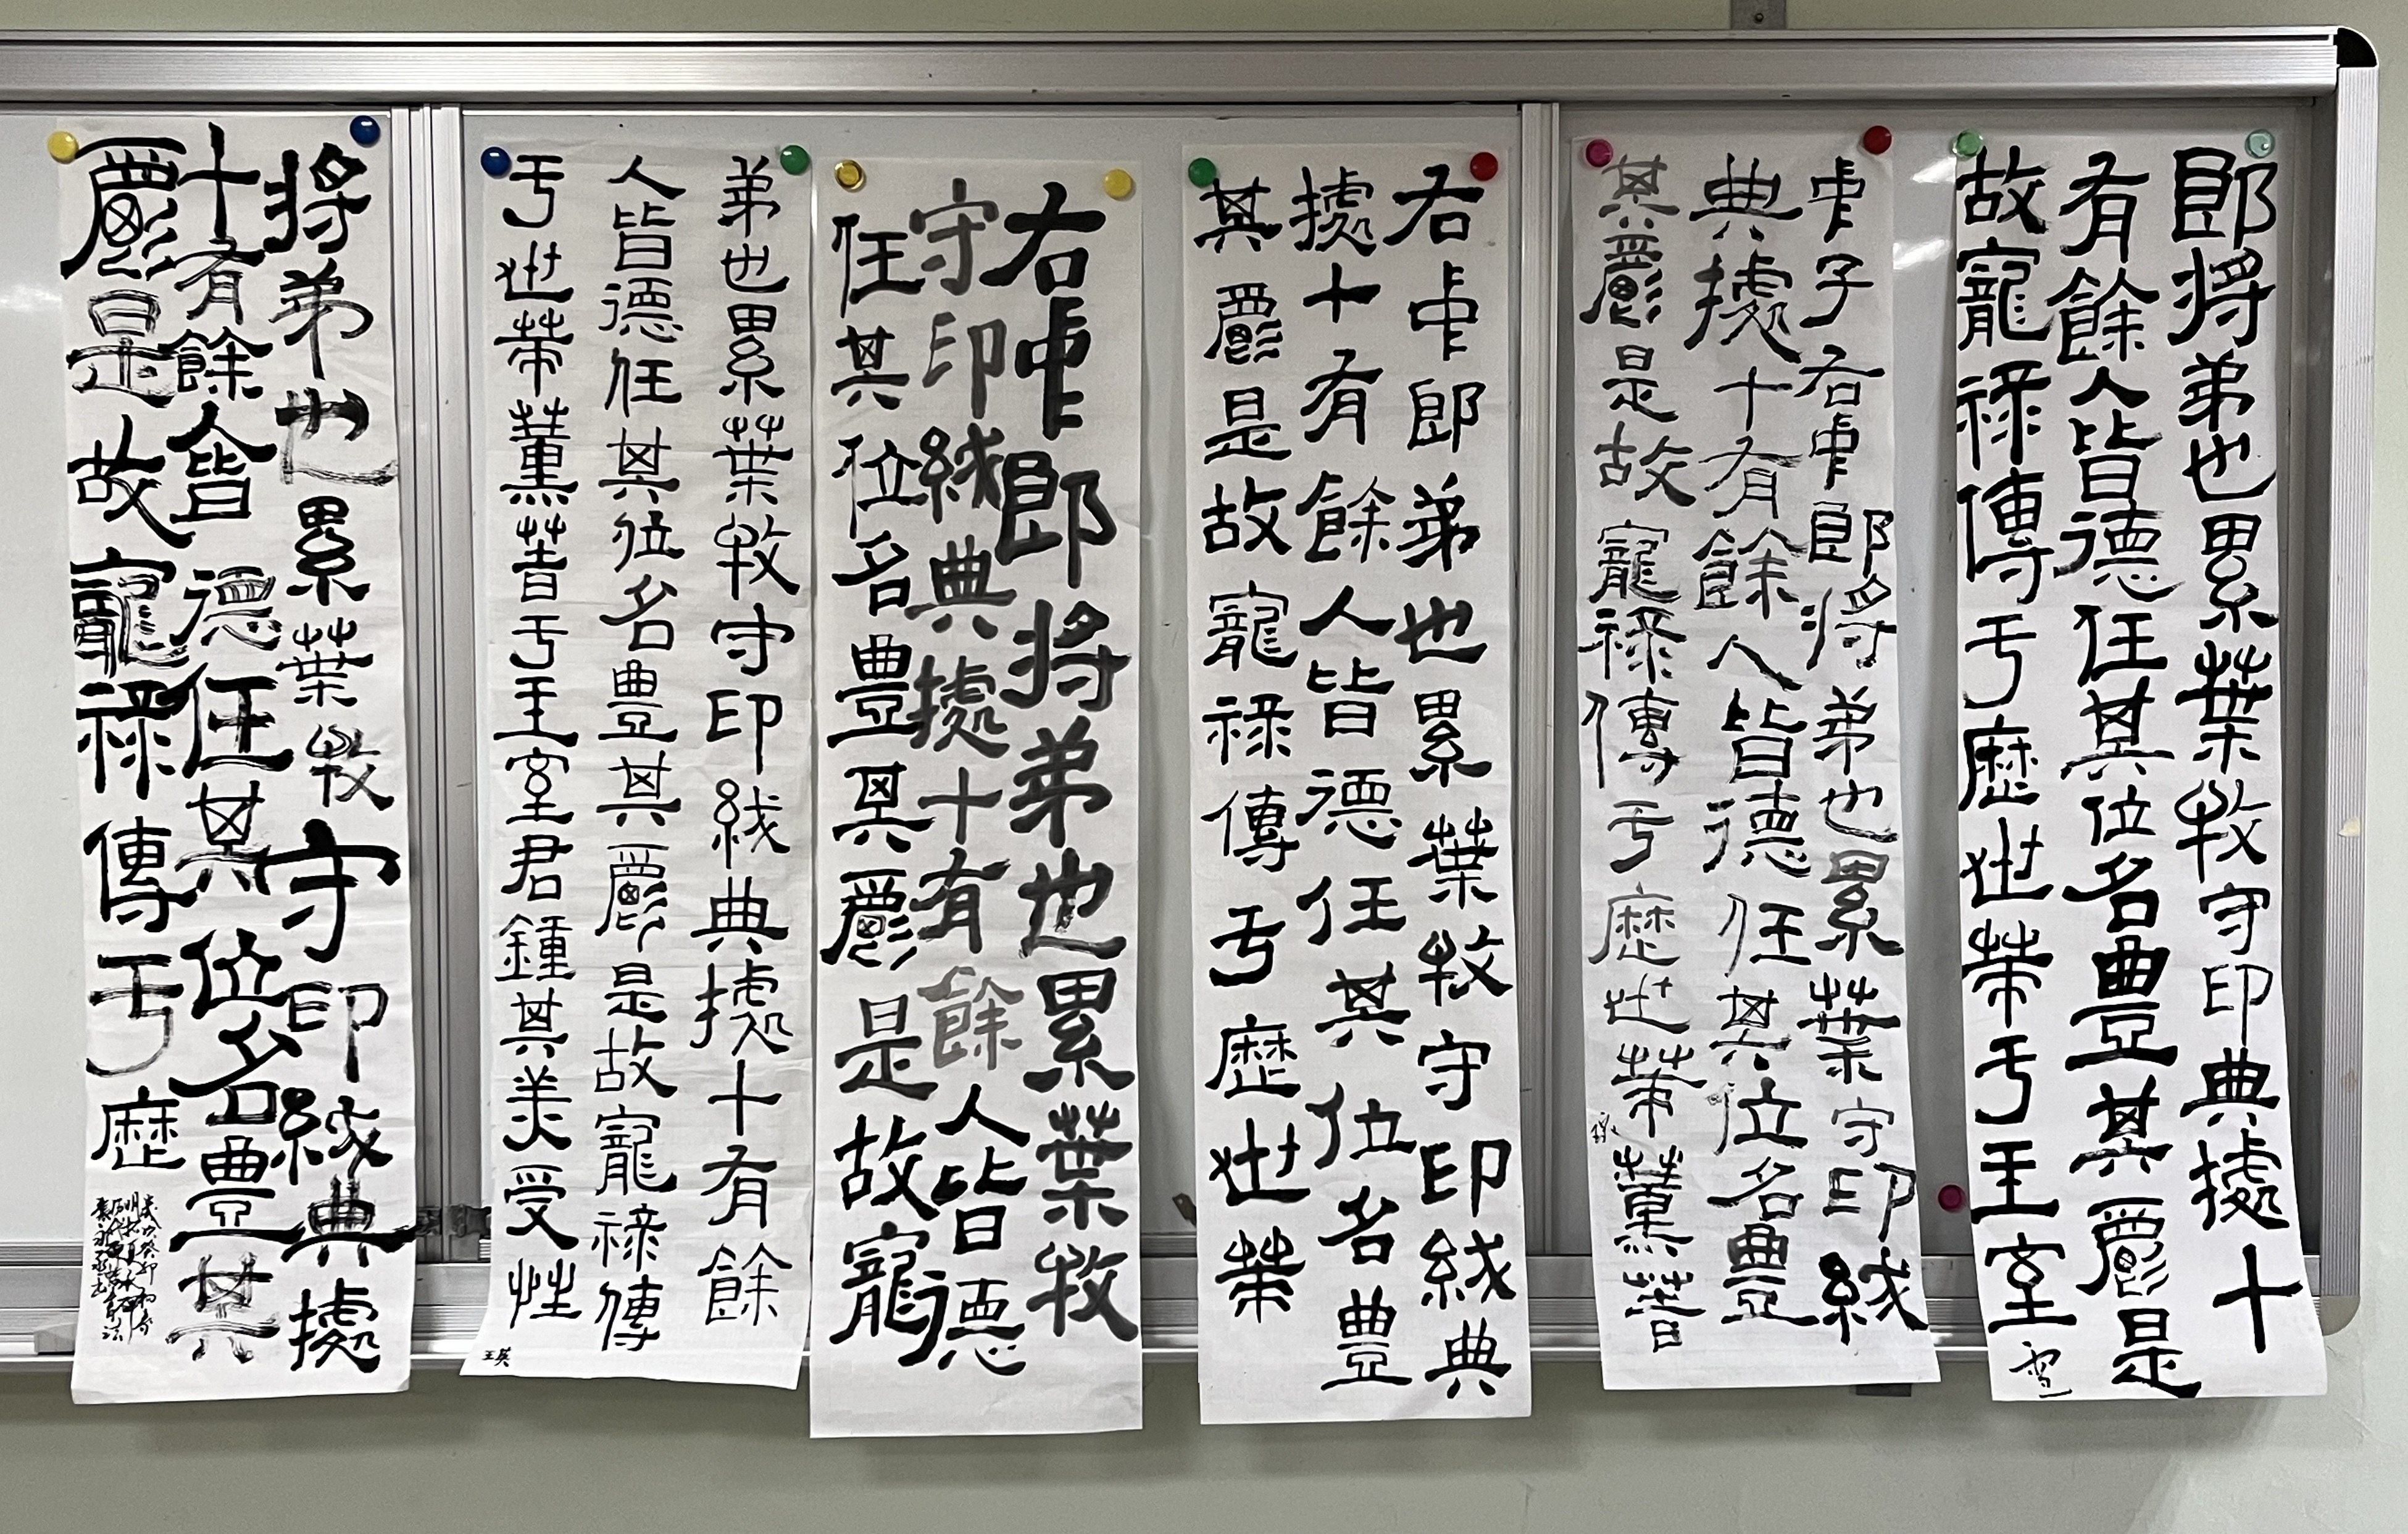 郎將弟也累葉牧守印典據十
有餘人皆德任其位名豐其爵是
故寵祿傳于歷世策于王室
雪
中子右中郎將弟也累葉守印紱
典據十有餘人皆德任其位名豐
其爵是故寵祿傳于歷世策薰著
右中郎弟也累葉牧守印紱典
據十有餘人皆德任其位名豐
其爵是故寵祿傳于歷世策
右中郎將弟也累葉牧
守印紱典據十有餘人皆德
任其位名豐其爵是故寵
弟也累葉牧守印紱典據十有餘
人皆德任其位名豐其爵是故寵祿傳
于世策薰著于王室君鍾其美受性
王英
將弟也累葉牧守印紱典據
十有餘人皆德任其位名豐其
爵是故寵祿傳于歷